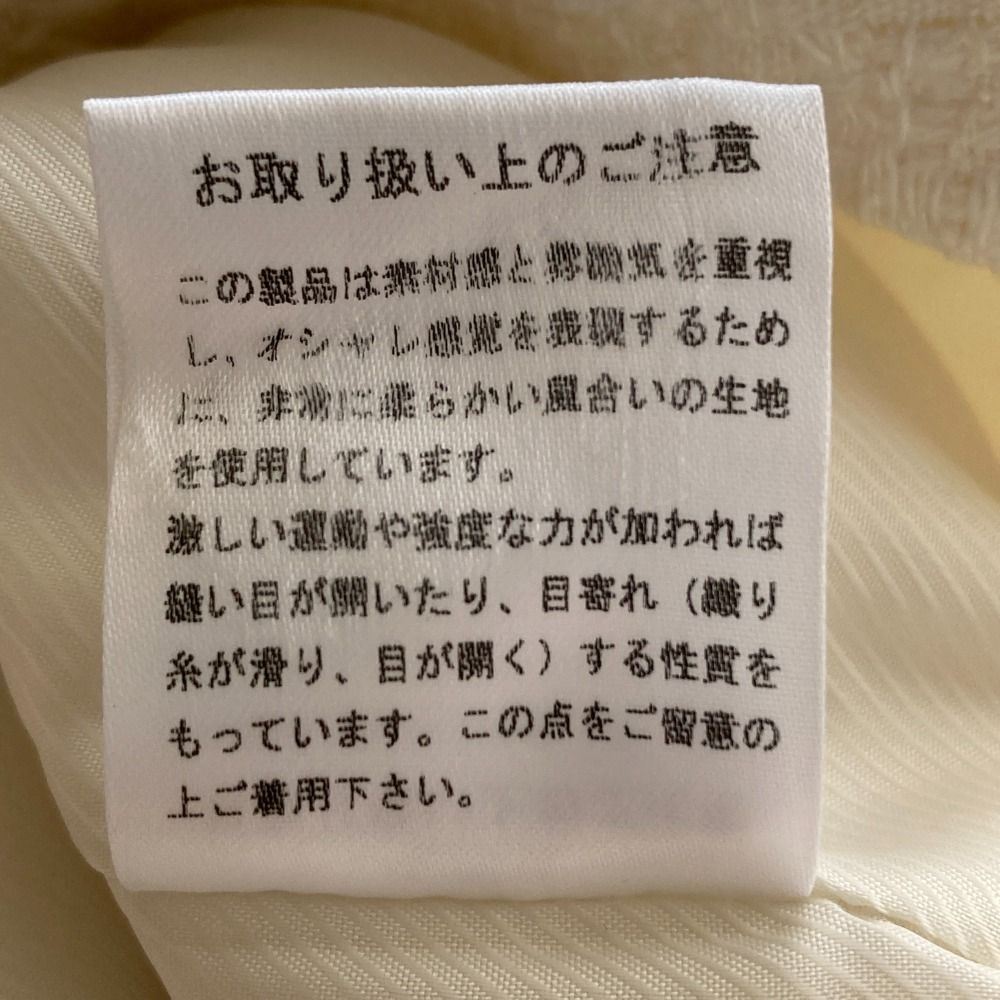 お取り扱い上のご注意
この製品は素材感と雰囲気を重視
し、オシャレ感覚を表現するため
に、非常に柔らかい風合いの生地
を使用しています。
激しい運動や強度な力が加われば
縫い目が開いたり、目寄れ（織り
糸が滑り、目が開く）する性質を
もっています。この点をご留意の
上ご着用下さい。